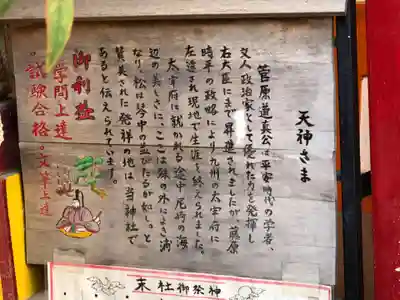 天神さま
菅原道真公は平安時代の学者、
文人政治家として優れた力を発揮し
右大臣にまで昇進されましたが、藤原
時平の政略により九州の太宰府に
左遷され現地で生涯を終えられました。
太宰府に赴かれる途中尼崎の海
辺の美しさに、ここは殊の外によき浦
なり、松は琴中の並びたるが如し。と
賛美された発祥の地は当神社で
あると伝えられています。
御利益
。学問上達
。試験合格。文筆上達
末社御祭神